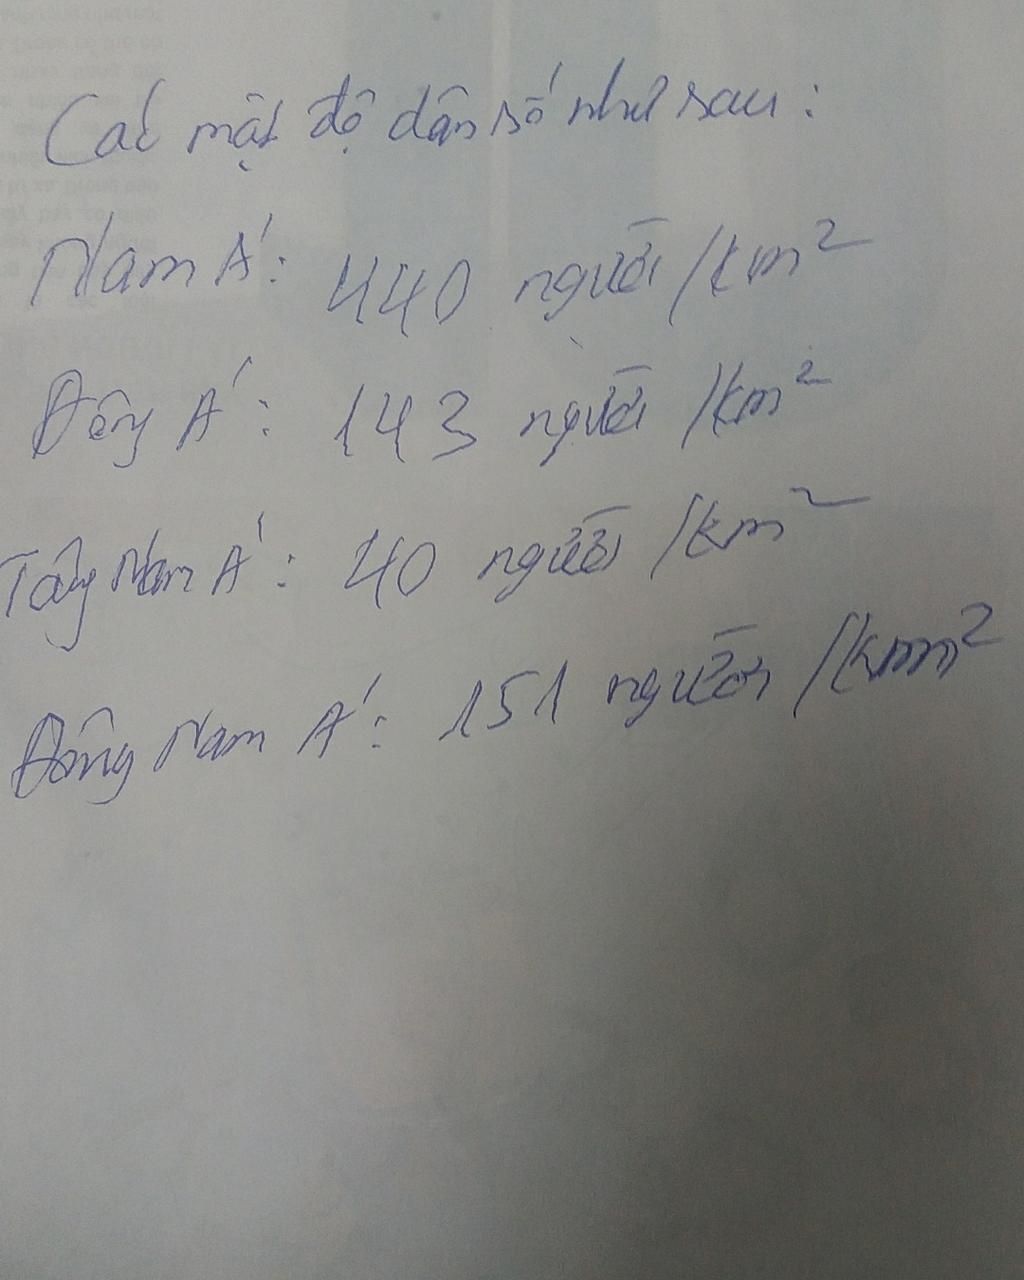 Các mật độ dân số như sau:
Nam Á: 440 người/km²
Đông Á: 143 người/km²
Tây Nam Á: 40 người/km²
Đông Nam Á: 151 người/km²